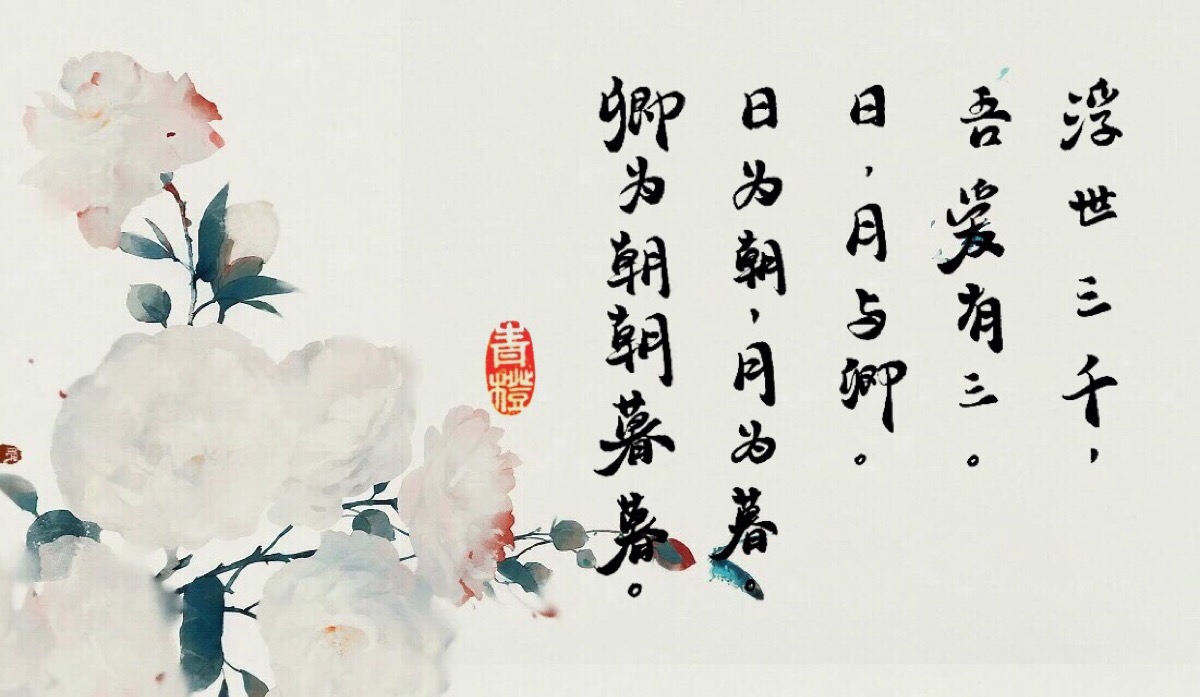 浮世三千，
吾爱有三。
日，月与卿。
日为朝，月为暮。
卿为朝朝暮暮。
青橙